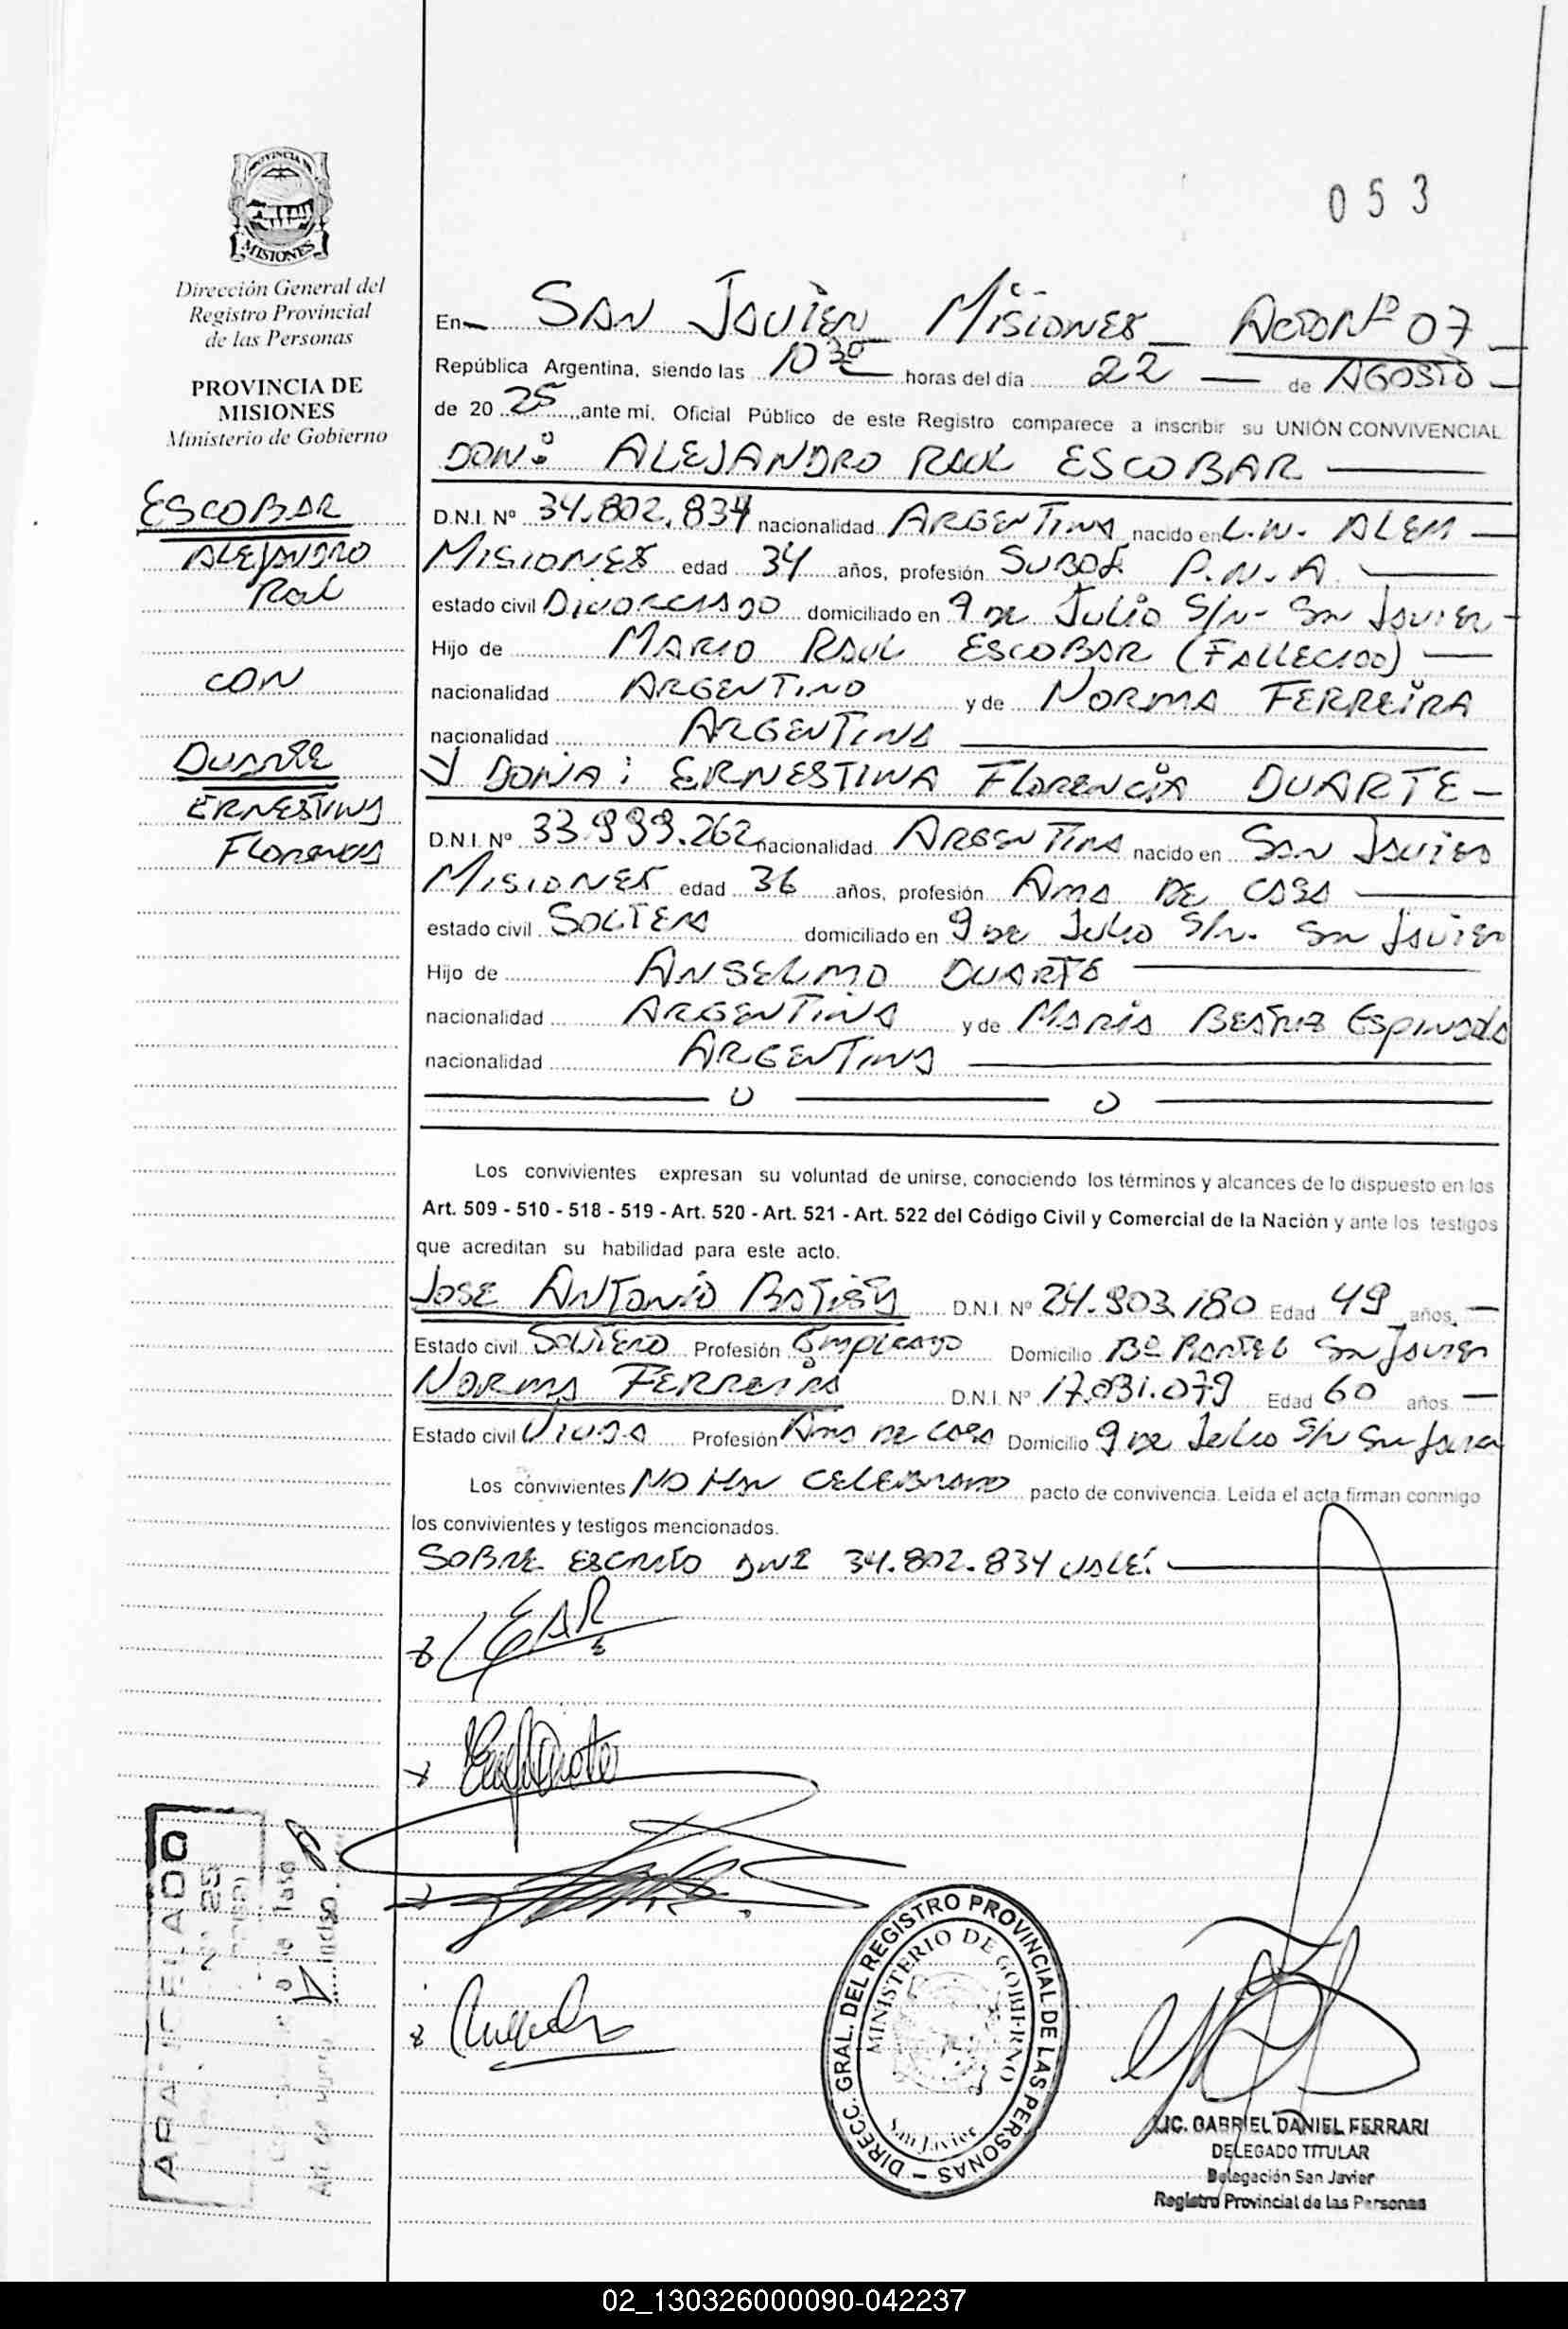 053
PROVINCIA DE
MISIONES
Dirección General del
Registro Provincial
de las Personas
PROVINCIA DE
MISIONES
Ministerio de Gobierno
ESCOBAR
ALEJANDRO
Raul
CON
DUARTE
ERNESTINA
FLORENCIA
En SAN JAVIER MISIONES ACTA Nº 07
República Argentina, siendo las 10 30 horas del día 22 de AGOSTO
de 20 25 ,ante mí, Oficial Público de este Registro comparece a inscribir su UNIÓN CONVIVENCIAL
DON: ALEJANDRO RAUL ESCOBAR
D.N.I. Nº 34.802.834 nacionalidad ARGENTINA nacido en L.N. ALEM
MISIONES edad 34 años, profesión SUBOF. P.N.A.
estado civil DIVORCIADO domiciliado en 9 DE JULIO S/N- San JAVIER
Hijo de MARIO RAUL ESCOBAR (FALLECIDO)
nacionalidad ARGENTINO y de NORMA FERREIRA
nacionalidad ARGENTINA
Y DOÑA: ERNESTINA FLORENCIA DUARTE
D.N.I. Nº 33.999.262 nacionalidad ARGENTINA nacido en SAN JAVIER
MISIONES edad 36 años, profesión AMA DE CASA
estado civil SOLTERA domiciliado en 9 DE Julio S/N. San JAVIER
Hijo de ANSELMO DUARTE
nacionalidad ARGENTINA y de MARIA BEATRIZ Espindola
nacionalidad ARGENTINA
Los convivientes expresan su voluntad de unirse, conociendo los términos y alcances de lo dispuesto en los
Art. 509 - 510 - 518 - 519 - Art. 520 - Art. 521 - Art. 522 del Código Civil y Comercial de la Nación y ante los testigos
que acreditan su habilidad para este acto.
JOSE ANTONIO D.N.I. Nº 24.903.180 Edad 49 años.
Estado civil SOLTERO Profesión EMPLEADO Domicilio Bº San JAVIER
NORMA FERREIRA D.N.I. Nº 17.031.079 Edad 60 años.
Estado civil VIUDA Profesión AMA DE CASA Domicilio 9 DE Julio S/N San Javier
Los convivientes NO HAN CELEBRADO pacto de convivencia. Leída el acta firman conmigo
los convivientes y testigos mencionados.
SOBRE ESCRITO DNI 34.802.834 VALE.
ARANCELADO
DIRECC. GRAL. DEL REGISTRO PROVINCIAL DE LAS PERSONAS
MINISTERIO DE GOBIERNO
San Javier
LIC. GABRIEL DANIEL FERRARI
DELEGADO TITULAR
Delegación San Javier
Registro Provincial de las Personas
02_130326000090-042237